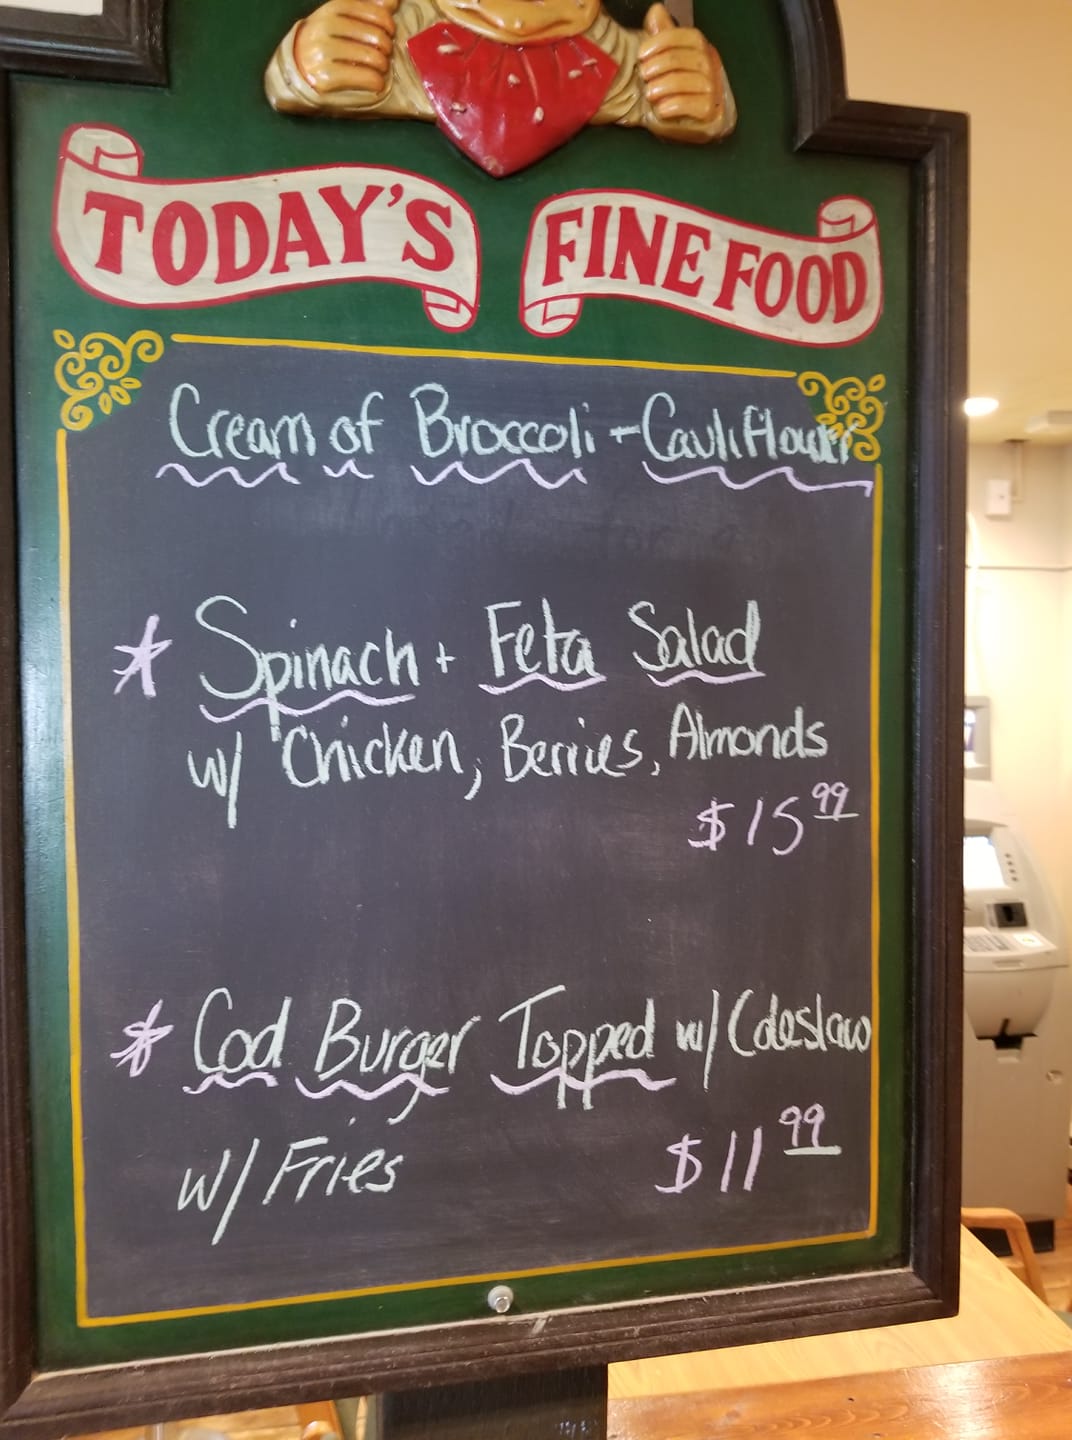 TODAY'S FINE FOOD
Cream of Broccoli - Cauliflower
* Spinach + Feta Salad
w/ Chicken, Berries, Almonds
$15 99
* Cod Burger Topped w/ Coleslaw
w/ Fries $11 99